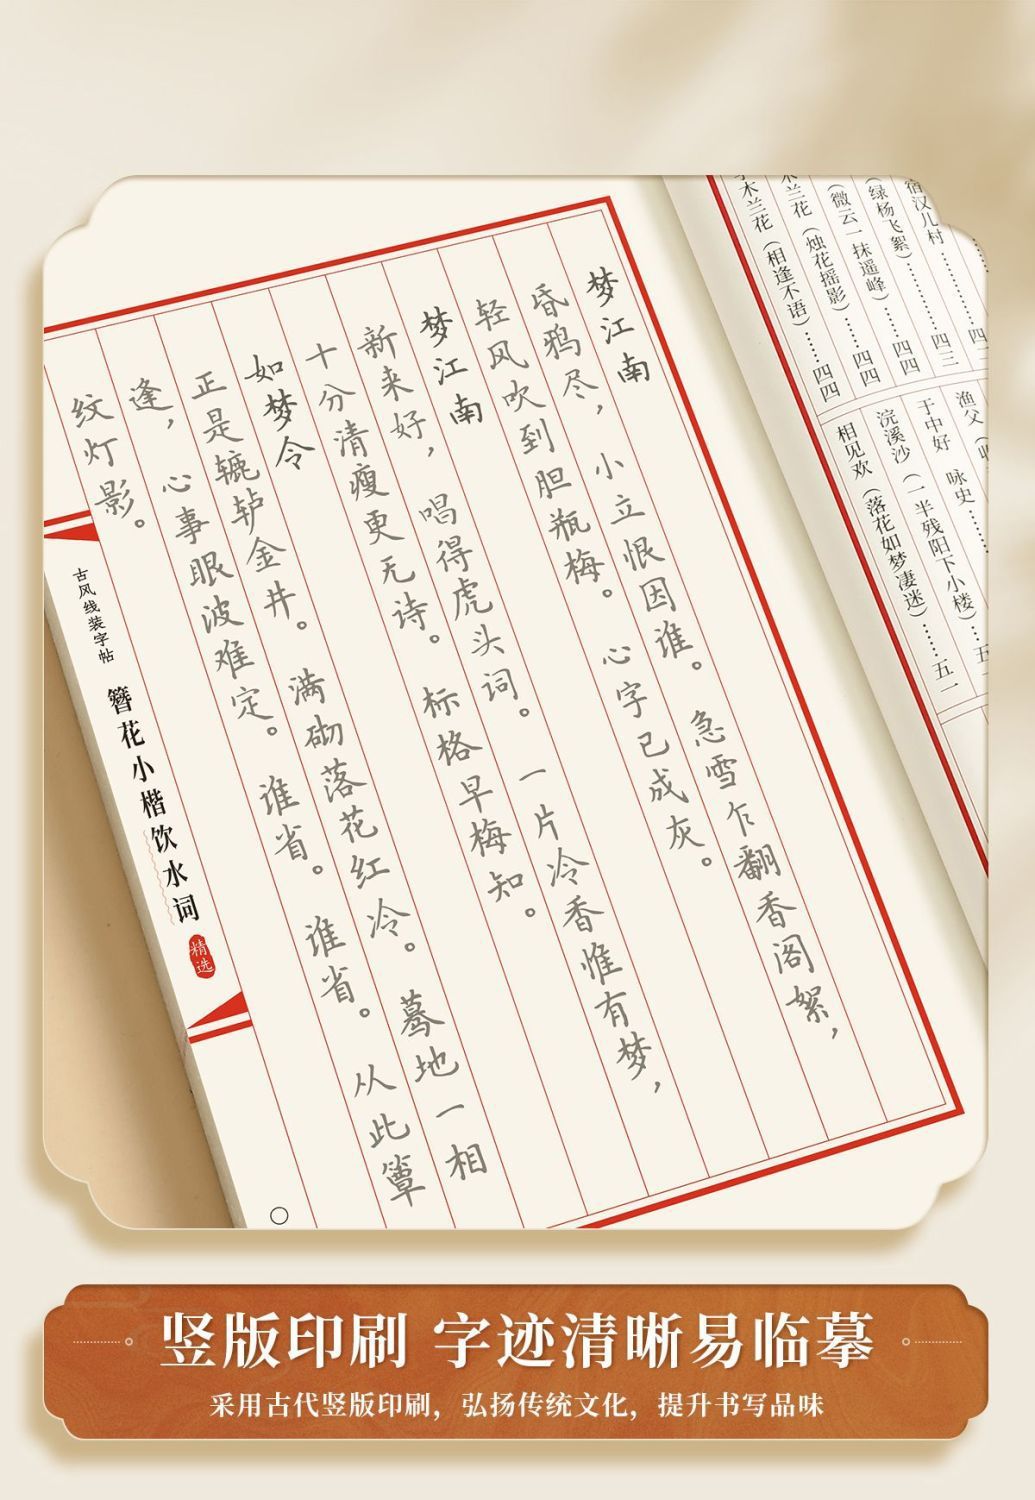 梦江南
昏鸦尽，小立恨因谁。急雪乍翻香阁絮，
轻风吹到胆瓶梅。心字已成灰。
梦江南
新来好，唱得虎头词。一片冷香惟有梦，
十分清瘦更无诗。标格早梅知。
如梦令
正是辘轳金井。满砌落花红冷。蓦地一相
逢，心事眼波难定。谁省。谁省。从此簟
纹灯影。
古风线装字帖
簪花小楷饮水词
精选
宿汉儿村………四三
（绿杨飞絮）………四四
（微云一抹遥峰）……四四
木兰花（烛花摇影）……四四
木兰花（相逢不语）……四四
渔父
于中好 咏史
浣溪沙（一半残阳下小楼）……五
相见欢（落花如梦凄迷）……五一
竖版印刷 字迹清晰易临摹
采用古代竖版印刷，弘扬传统文化，提升书写品味